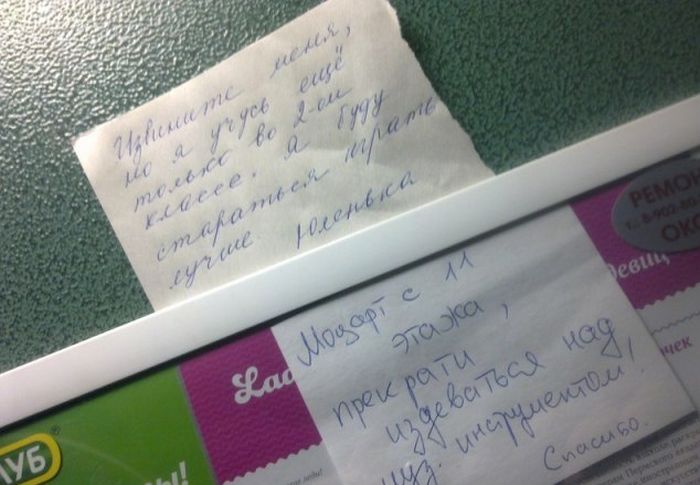 Извините меня,
но я учусь ещё
только во 2-ом
классе. Я буду
стараться играть
лучше Юленька
РЕМОН
ОКО
Моцарт с 11
этажа,
прекрати
издеваться над
муз. инструментом!
Спасибо.
Lad
УБ
Ы!